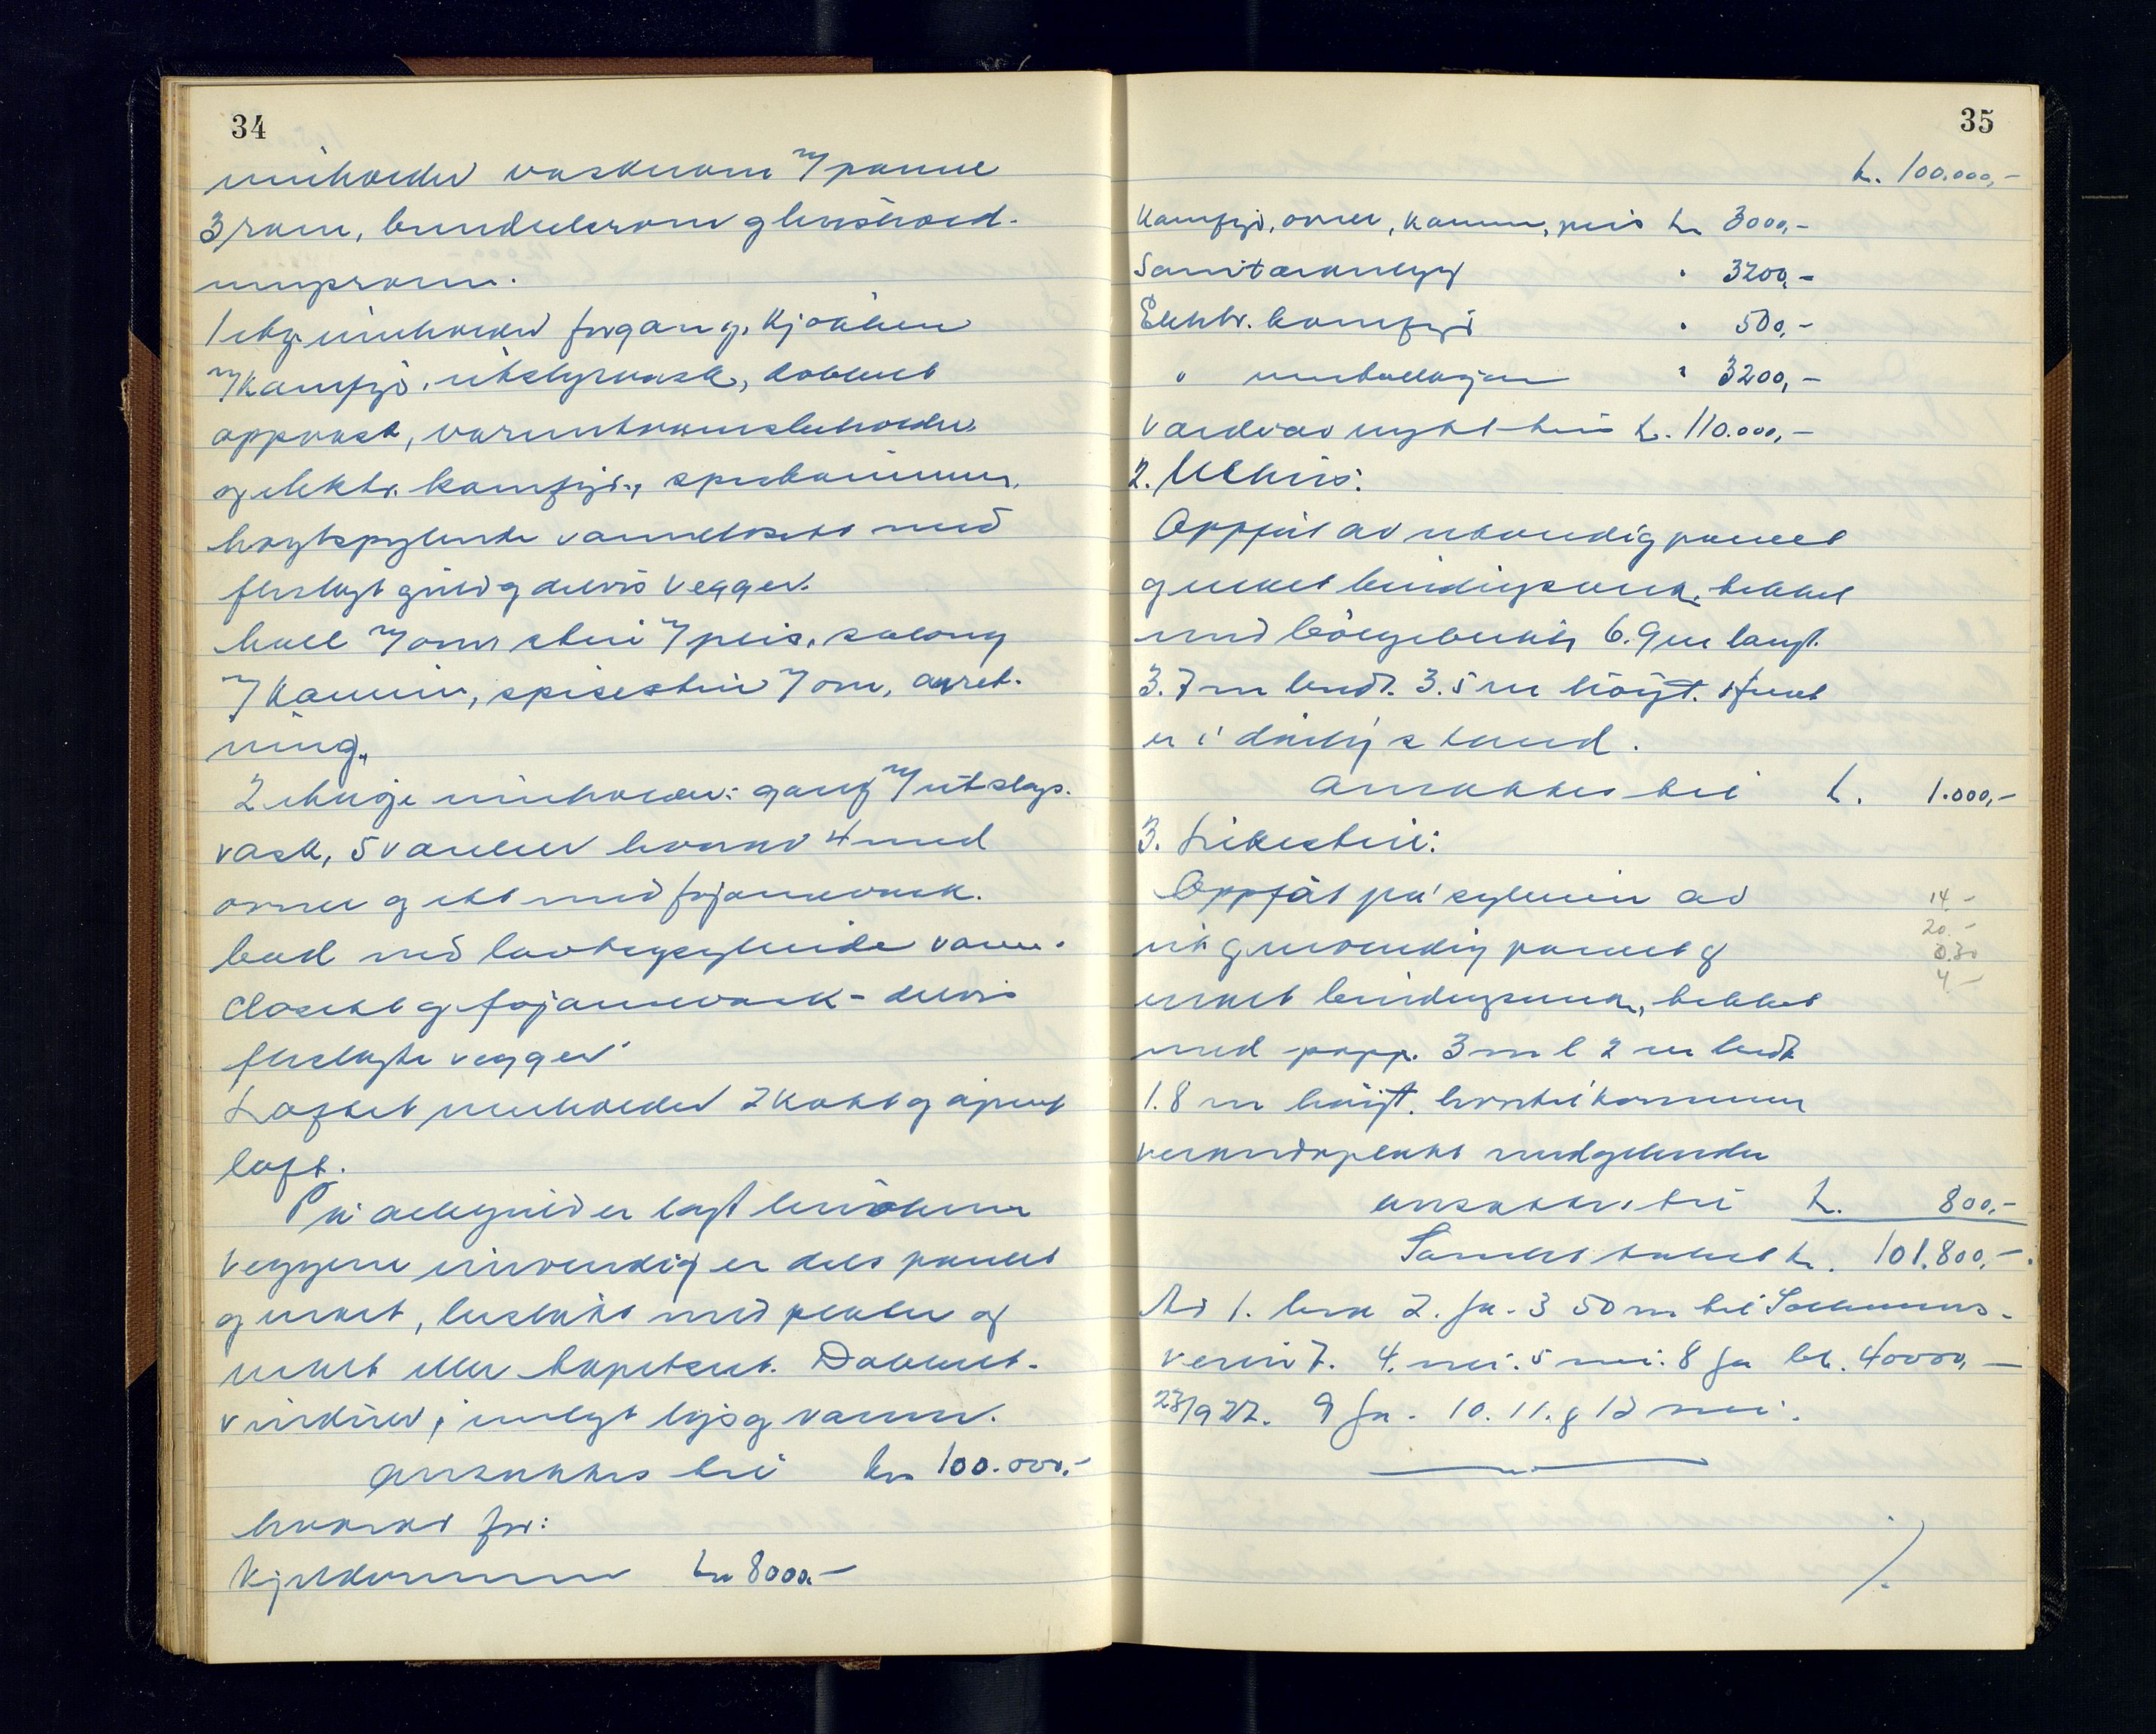 34
inneholder vaskerom m/ panne
3 rom, brendselsrom og husholdningsrom.
1 etg. inneholder forgang, kjøkken
m/ komfyr, utslagsvask, dobbelt
oppvask, varmtvannsbeholder
og elektr. komfyr, spiskammer,
høytspylende vannklosett med
fliselagt gulv og delvis vegger.
hall m/ ovn, stue m/ peis, salong
m/ kamin, spisestue m/ ovn, anret-
ning.
2 etasje inneholder: gang m/ utslags-
vask, 5 værelser hvorav 4 med
ovner og ett med fajansevask.
bad med lavtspylende vann-
closett og fajansevask - delvis
fliselagte vegger
Loftet inneholder 2 kott og åpent
loft.
På alle gulv er lagt linoleum
veggene innvendig er dels panelt
og malt, beslått med plater og
malt eller tapetsert. Dobbelt-
vinduer, innlagt lys og vann.
ansettes til kr 100.000.-
hvorav for:
kr 8000.-
35
kr. 100.000,-
Komfyr, ovner, kamin, peis kr 3000,-
Sanitæranlegg " 3200,-
Elektr. komfyr " 500,-
" installasjon " 3200,-
Verdi av nytt hus kr. 110.000,-
2. Uthus:
Oppført av utvendig panelt
og malt bindingsverk, tekket
med bølgeblikk 6.9 m langt.
3.7 m bredt. 3.5 m høyt. Huset
er i dårlig stand.
ansettes til kr. 1.000,-
3. Lekestue:
Oppført på søyler av
ut og innvendig panelt og
malt bindingsverk, tekket
med papp. 3 m l 2 m bredt
1.8 m høyt. hvortil kommer
ansettes til kr. 800,-
Samlet takst kr. 101.800,-
14.-
20.-
0.30
4 -
Ad 1. bra 2. ja - 3 50 m til
4. nei. 5 nei. 8 ja kr. 40000,-
9 ja - 10. 11. og 12 nei.